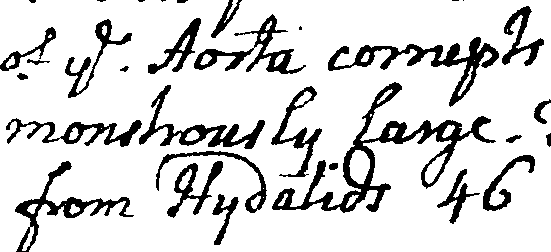 of ye. Aorta corrupts
monstrously large.
from Hydatids 46